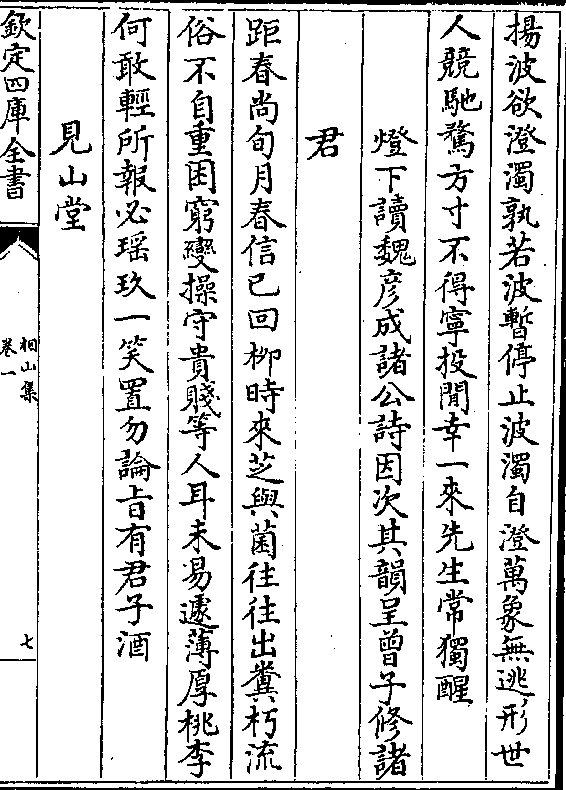 揚波欲澄濁孰若波暫停止波濁自澄萬象無逃形世
人競馳騖方寸不得寧投閒幸一來先生常獨醒
燈下讀魏彦成諸公詩因次其韻呈曾子修諸
君
距春尚旬月春信已回栁時來芝與菌徃徃出糞朽流
俗不自重困窮變操守貴賤等人耳未易遽薄厚桃李
何敢輕所報必瑶玖一笑置勿論㫖有君子酒
見山堂
欽定四庫全書
相山集
卷一
七